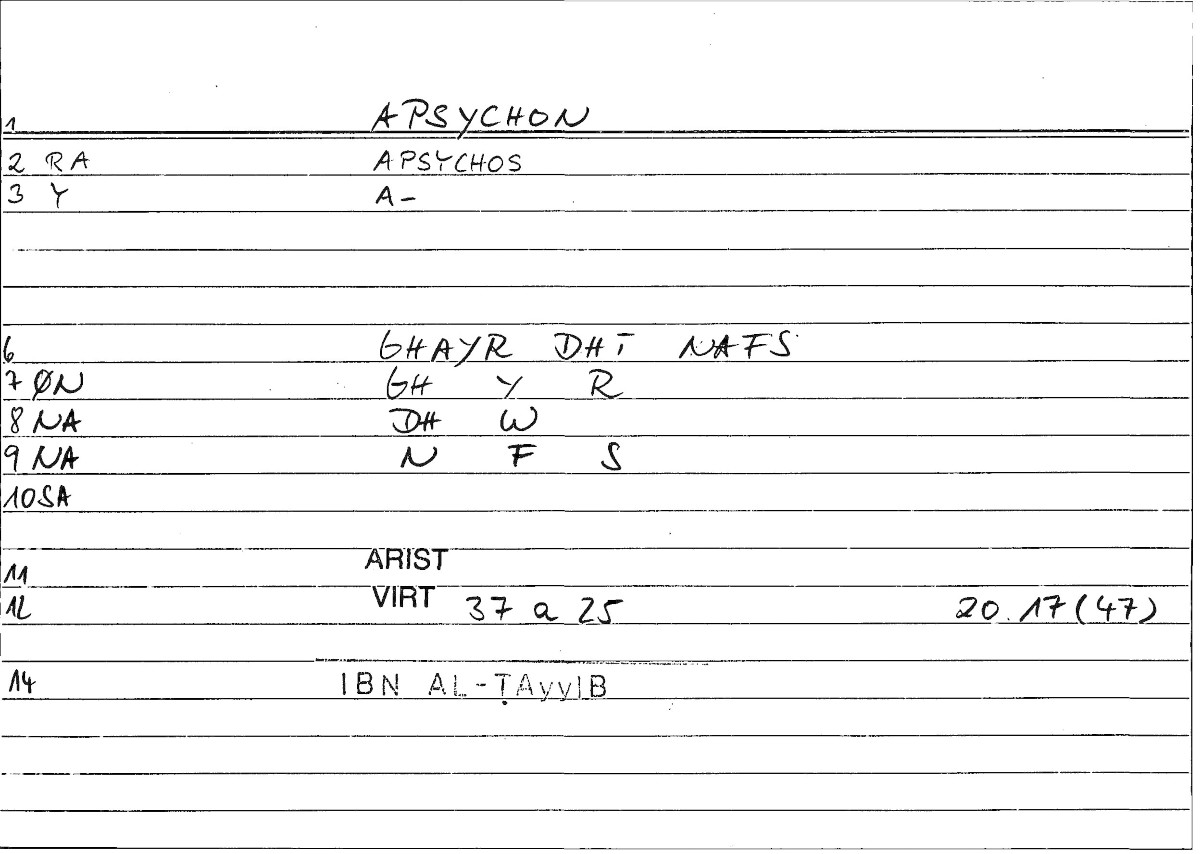 1 APSYCHON
2 RA APSYCHOS
3 Y A-
6 GHAYR DHĪ NAFS
7 ØN GH Y R
8 NA DH W
9 NA N F S
10 SA
11 ARIST
12 VIRT 37 a 25 20.17(47)
14 IBN AL-ṬAyyIB